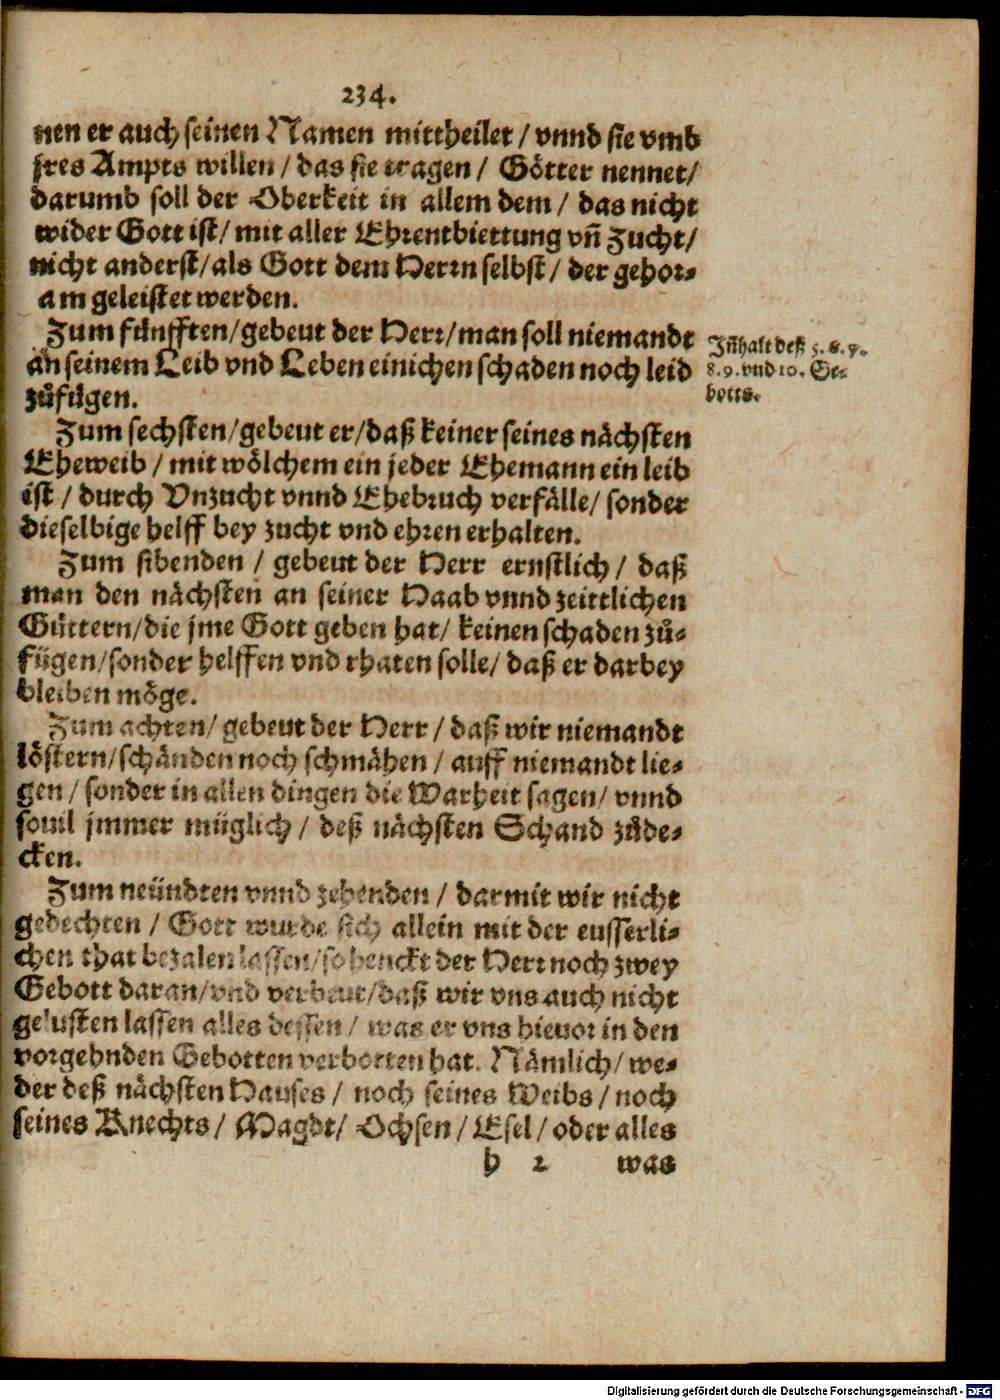 234.
nen er auch seinen Namen mittheilet / vnnd sie vmb
jres Ampts willen / das sie tragen / Götter nennet /
darumb soll der Oberkeit in allem dem / das nicht
wider Gott ist / mit aller Ehrentbiettung vñ Zucht /
nicht anderst / als Gott dem Herrn selbst / der gehor⸗
sam geleistet werden.
Zum fünfften / gebeut der Herr / man soll niemandt
an seinem Leib vnd Leben einichen schaden noch leid
zůfügen.
Jnhalt deß 5. 6. 7.
8. 9. vnd 10. Ge⸗
botts.
Zum sechsten / gebeut er / daß keiner seines nächsten
Eheweib / mit wölchem ein jeder Ehemann ein leib
ist / durch Vnzucht vnnd Ehebruch verfälle / sonder
dieselbige helff bey zucht vnd ehren erhalten.
Zum sibenden / gebeut der Herr ernstlich / daß
man den nächsten an seiner Haab vnnd zeittlichen
Güttern / die jme Gott geben hat / keinen schaden zů⸗
fügen / sonder helffen vnd rhaten solle / daß er darbey
bleiben möge.
Zum achten / gebeut der Herr / daß wir niemandt
löstern / schänden noch schmähen / auff niemandt lie⸗
gen / sonder in allen dingen die Warheit sagen / vnnd
souil jmmer müglich / deß nächsten Schand zůde⸗
cken.
Zum neündten vnnd zehenden / darmit wir nicht
gedechten / Gott wurde sich allein mit der eusserli⸗
chen that bezalen lassen / so henckt der Herr noch zwey
Gebott daran / vnd verbeut / daß wir vns auch nicht
gelusten lassen alles dessen / was er vns hieuor in den
vorgehnden Gebotten verbotten hat. Nämlich / we⸗
der deß nächsten Hauses / noch seines Weibs / noch
seines Knechts / Magdt / Ochsen / Esel / oder alles
h 2 was
Digitalisierung gefördert durch die Deutsche Forschungsgemeinschaft - DFG